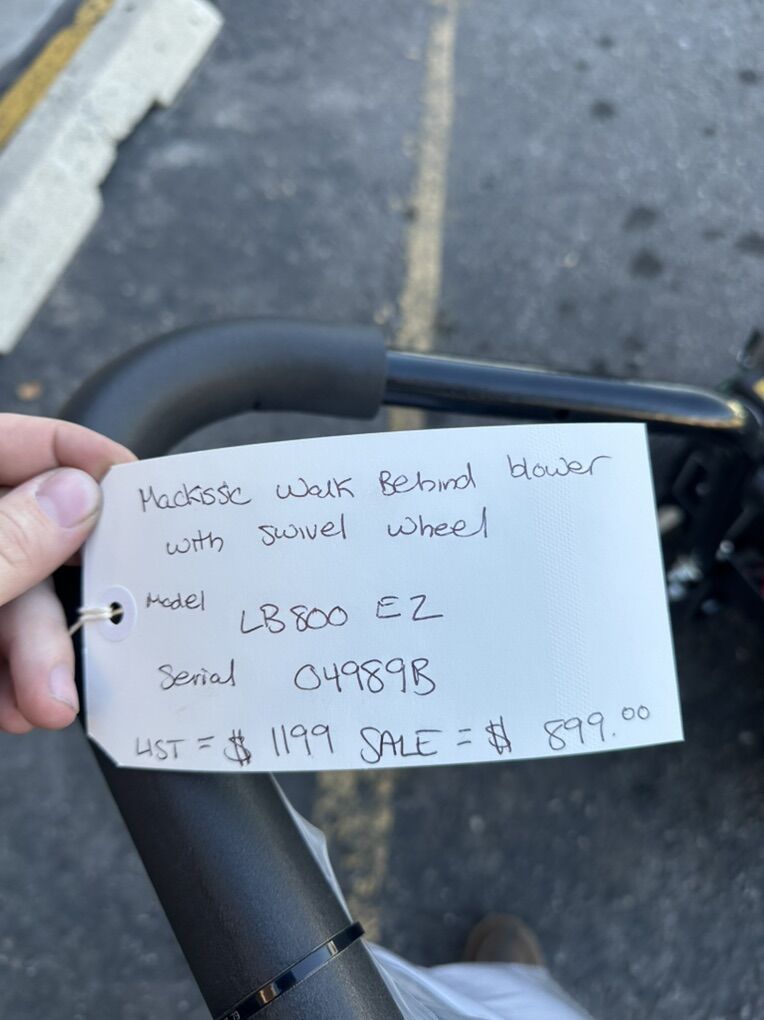 Mackissic Walk Behind blower
with swivel wheel
Model LB800 EZ
Serial 04989B
LIST = $ 1199 SALE = $ 899.00